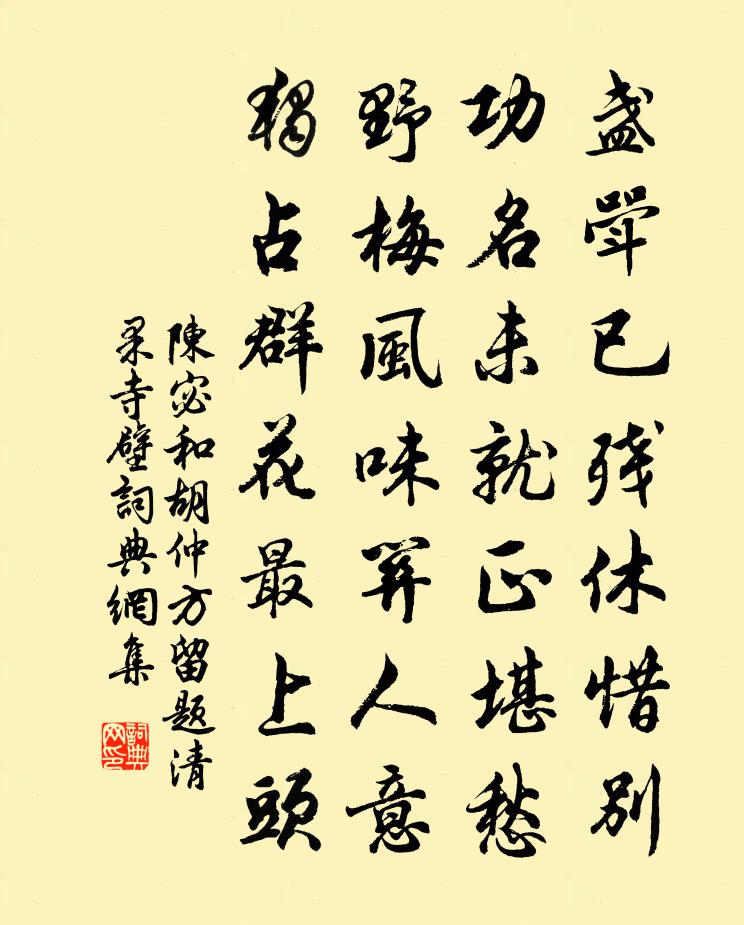 盏斝已残休惜别
功名未就正堪愁
野梅風味羿人意
獨占群花最上頭
陳宓和胡仲方留题清
杲寺壁詞典網集
詞典
网印